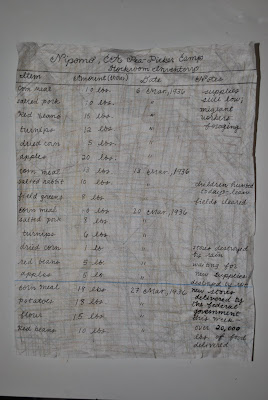 Nipomo, CA Pea-Picker Camp
Stockroom Inventory
Item Amount (lbs) Date Notes
corn meal 10 lbs. 6 Mar, 1936 supplies
salted pork 10 lbs. " still low;
Red Beans 15 lbs " migrant
turnips 12 lbs " workers
dried corn 5 lbs. " foraging
apples 20 lbs. "
corn meal 10 lbs 13 Mar, 1936
salted rabbit 10 lbs. " children hunted
field greens lbs " fields cleared
corn meal lbs 20 Mar, 1936
salted pork 8 lbs "
turnips 6 lbs "
dried corn 1 lb " destroyed
by rain
red beans 5 lb " waiting for
apples 5 lb " new supplies
destroyed by rot
corn meal 18 lbs 27 Mar, 1936 new stores
potatoes 18 lbs " delivered by
the Federal
flour 15 lbs " government
this week -
Red beans 10 lbs " over 20,000
lbs of food
delivered